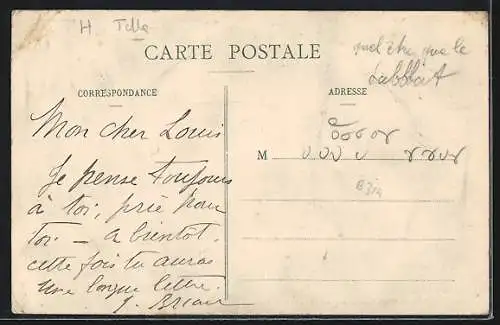 H
CARTE POSTALE
quel être que le
CORRESPONDANCE
ADRESSE
Mon cher Louis
M
Je pense toujours
à toi, prie pour
toi – a bientôt.
cette fois tu auras
une longue lettre.